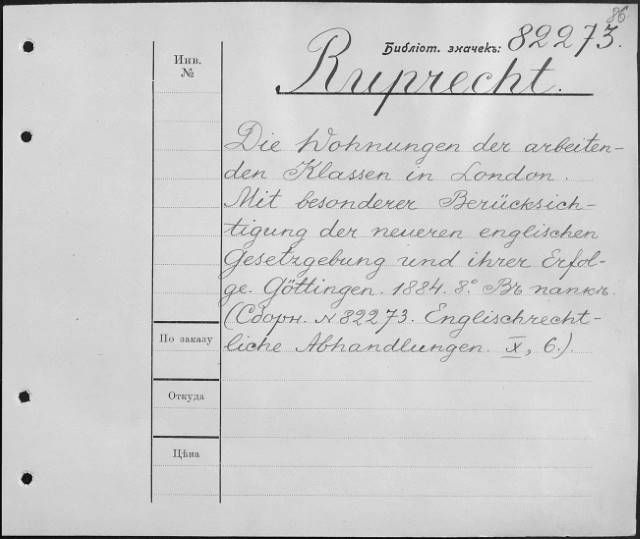 86
Библіот. значекъ: 82273.
Инв.
№
Ruprecht.
Die Wohnungen der arbeiten-
den Klassen in London.
Mit besonderer Berücksich-
tigung der neueren englischen
Gesetzgebung und ihrer Erfol-
ge. Göttingen. 1884. 8.° Въ папкѣ.
(Сборн. № 82273. Englischrecht-
liche Abhandlungen. X, 6.).
По заказу
Откуда
Цѣна